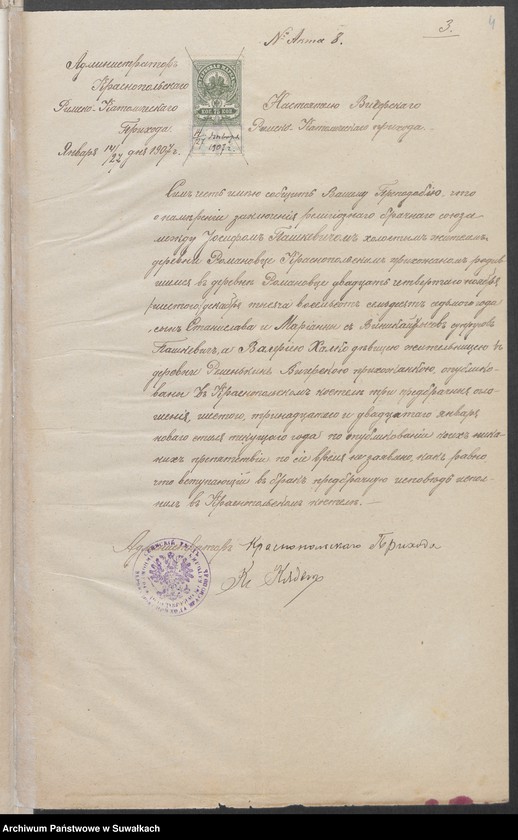 3.
4
№ Акта 8.
Администраторъ
Краснопольскаго
Римско-Католическаго
Прихода.
Января 14/27 дня 1907 г.
75 КОП. 75
14/27 Января
1907 г.
Настоятелю Вигерскаго
Римско-Католическаго прихода.
Симъ честь имѣю сообщить Вашему Преподобію, что
о намѣреніи заключенія религіознаго брачнаго союза
между Іосифомъ Пашкевичомъ холостымъ жителемъ
деревни Романовце Краснопольскимъ прихожаниномъ родив-
шимся въ деревнѣ Романовце двадцать четвертаго ноября
/шестого декабря тысяча восемьсотъ семьдесятъ седьмого года
сынъ Станислава и Маріанны съ супруговъ
Пашкевичъ, а Валерію Халко дѣвицею жительницею въ
деревнѣ Вигерскою прихожанкою, опублико-
ваны въ Краснопольскомъ костелѣ три предбрачныя огла-
шенія, шестого, тринадцатаго и двадцатаго января
новаго стиля текущаго года по опубликованіи коихъ ника-
кихъ препятствій по сіе время не заявлено, какъ равно
что вступающій въ бракъ предбрачную исповѣдь испол-
нилъ въ Краснопольскомъ костелѣ.
Администраторъ Краснопольскаго Прихода
Кс
Archiwum Państwowe w Suwałkach